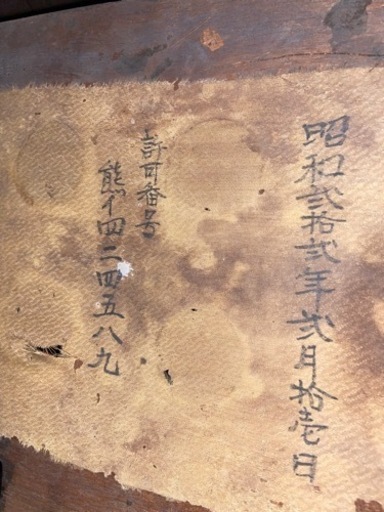 昭和弐拾弐年弐月拾壱日
許可番号
熊イ四二四五八九